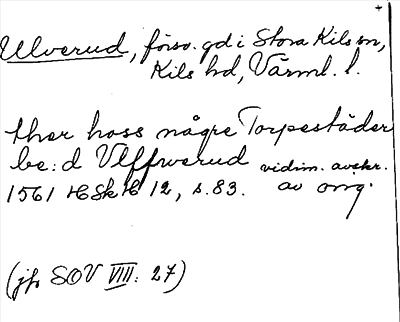 Ulverud, försv. gd i Stora Kils sn,
Kils hd, Värml. l.
ther hoss någre Torpestäder
be:d Vlffwerud vidim. avskr.
1561 HSkH 12, s. 83. av orig.
(jfr SOV VIII: 27)